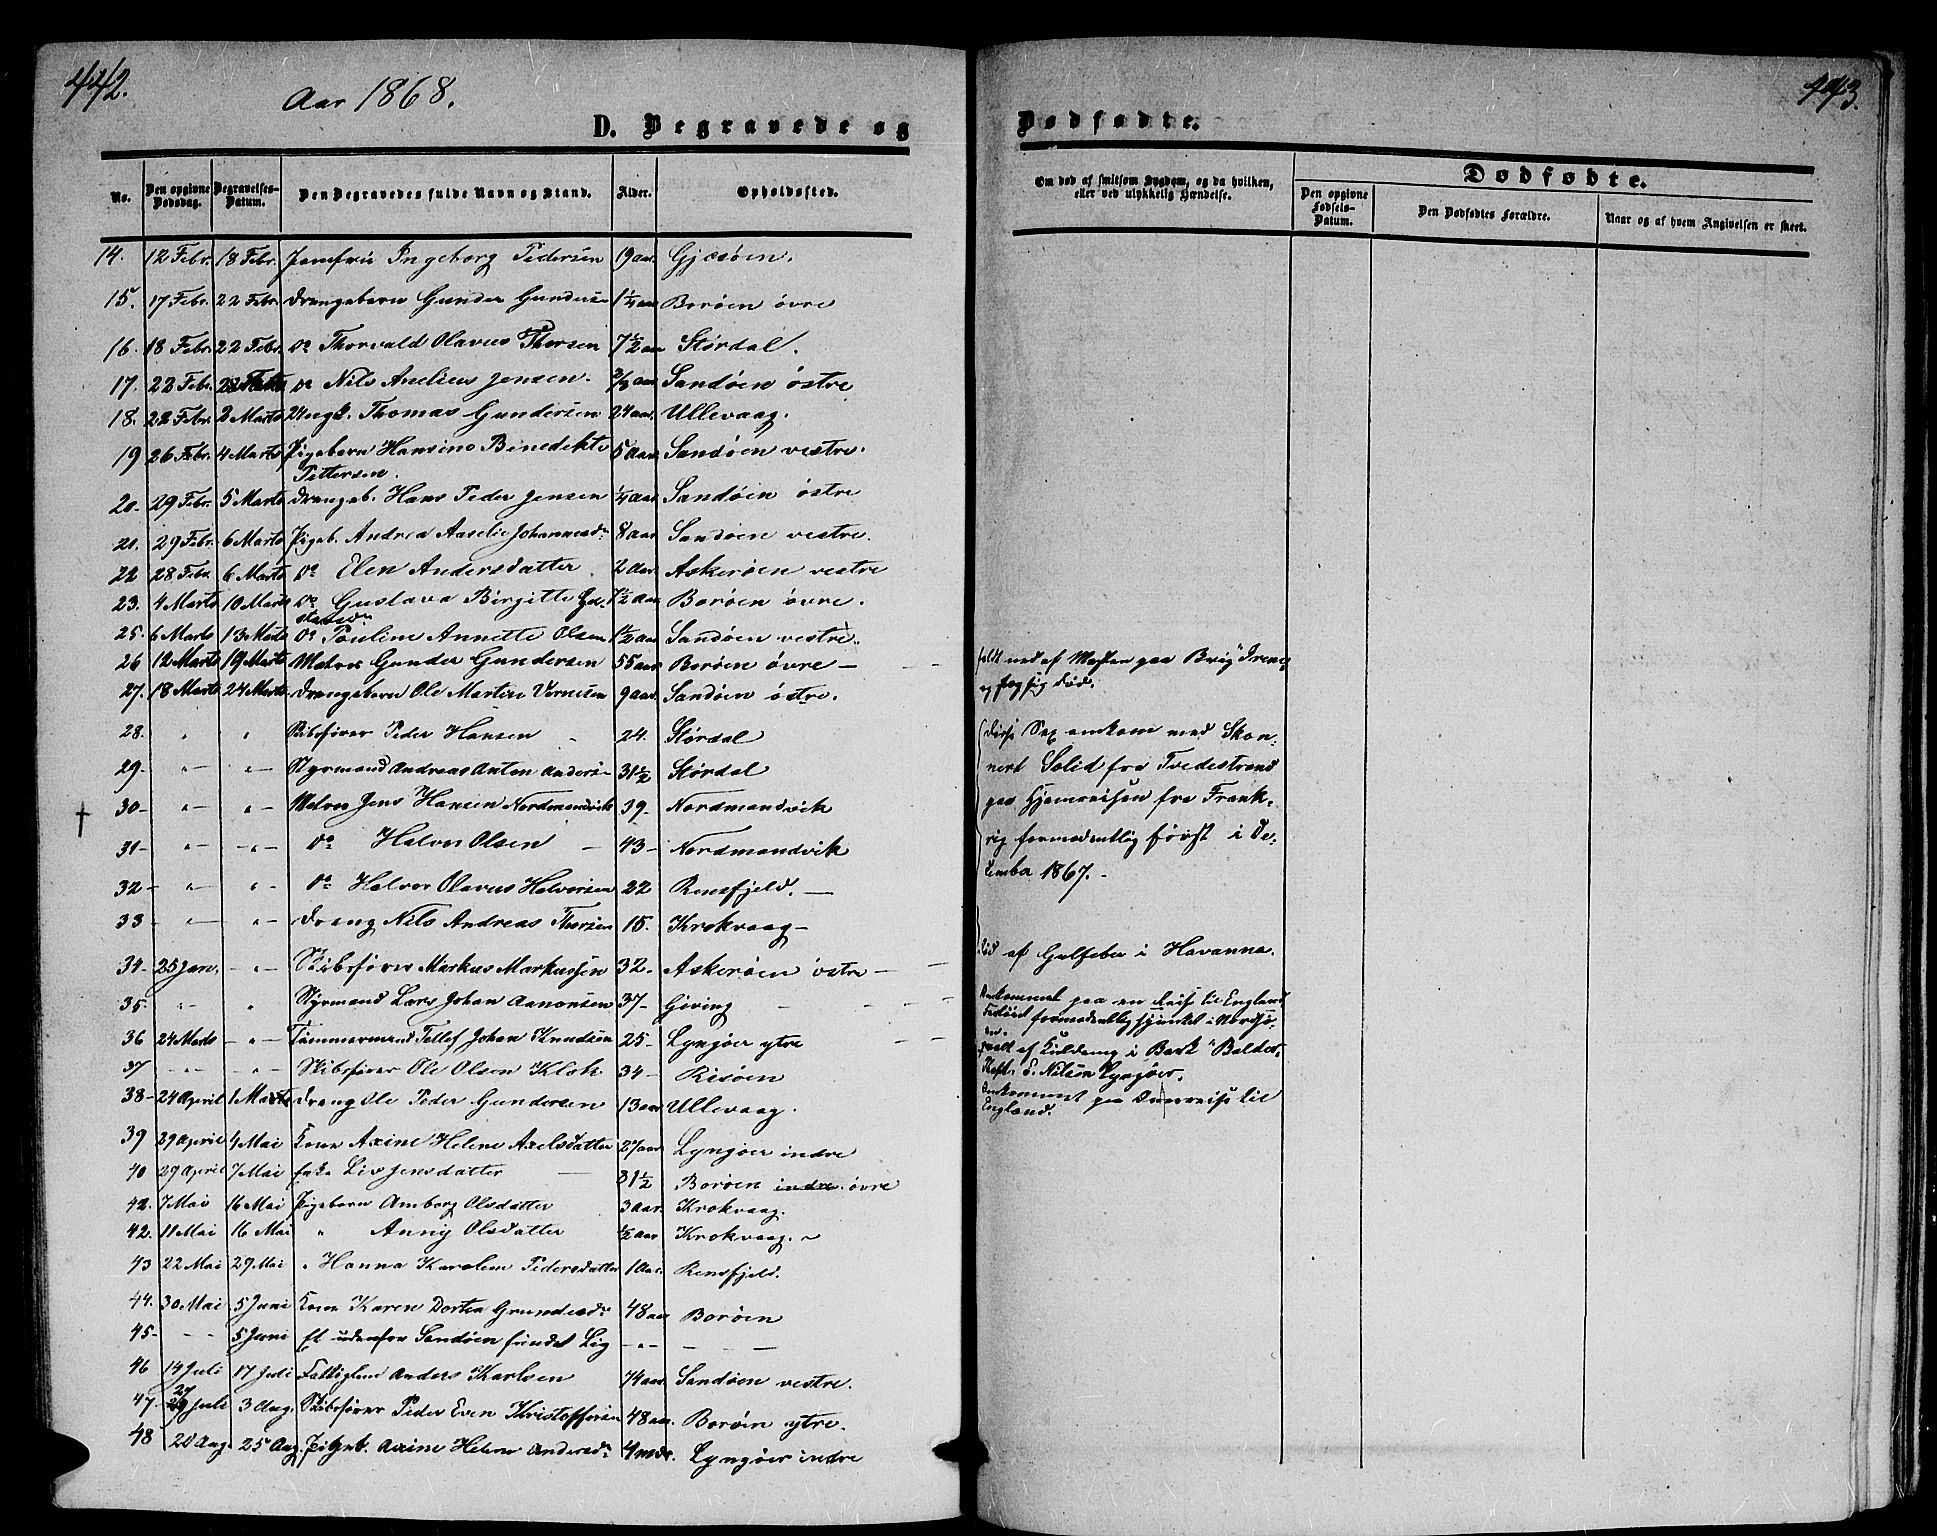 442.
Aar 1868.
D. Begravede og
No.
Den opgivne Dødsdag.
Begravelses-Datum.
Den Begravedes fulde Navn og Stand.
Alder.
Opholdssted.
14. 12 Febr. 18 Febr. Jomfru Ingeborg Pedersen 19 aar. Gjæsøen.
15. 17 Febr. 22 Febr. Drengebarn Gunder Gunders 1¼ aar Borøen øvre
16. 18 Febr. 22 Febr. Do Thorvald Olavus Thorsen 7½ aar Størdal.
17. 22 Febr. Do Nils Anelius Jensen. aar Sandøen østre
18. 22 Febr. 2 Marts Ungk. Thomas Gundersen 24 aar. Ullevaag.
19 26 Febr. 4 Marts Pigebarn Hansine Benedikte 5 aar Sandøen vestre.
Pettersen.
20. 29 Febr. 5 Marts Drengeb. Hans Peder Jensen ¼ aar. Sandøen østre
21. 29 Febr. 6 Marts Pigeb. Andrea Aaselie Johannesdr 8 aar Sandøen vestre.
22 28 Febr. 6 Marts Do Elen Andersdatter 2 aar. Askerøen vestre
23. 4 Marts 10 Marts Do Gustava Birgitte Gu- 1½ aar Borøen øvre.
stavsdr
25. 6 Marts 13 Marts Do Pouline Annette Olsen 1½ aar Sandøen vestre.
26 12 Marts 19 Marts Matros Gunder Gundersen 55 aar Borøen øvre —
27. 18 Marts 24 Marts. Drengebarn Ole Martin Vernesen 9 aar. Sandøen østre.
28. " " Skibsfører Peder Hansen 24. Størdal
29. " " Styrmand Andreas Anton Anders 31½ Størdal
30 — " " Matros Jens Hansen Nordmandvik 39. Nordmandvik
31 — " " Do Halvor Olsen 43 — Nordmandvik
32 — " " Do Halvor Olavus Halvorsen 22 Rensfjeld. —
33 " " Dreng Nils Andreas Thorsen 15. Krokvaag —
34 — 25 Jan. " Skibsfører Markus Markussen 32. Askerøen østre —
35 — " " Styrmand Lars Johan Aanonsen 37 — Gjeving
36 24 Marts " Tømmermand Tellef Johan Knudsen 25 — Lyngøer ytre
37 " " Skibsfører Ole Olsen Klok 34 — Risøen
38 — 24 April 1 Marts Dreng Ole Peder Gundersen 13 aar Ullevaag.
39 29 April 4 Mai Kone Axine Helene Axelsdatter 27 aar. Lyngøer indre
40 29 April 7 Mai Enke Liv Jensdatter 81½ Borøen indre øvre
42. 7 Mai 16 Mai Pigebarn Amborg Olsdatter 3 aar. Krokvaag.
42. 11 Mai 16 Mai " Anny Olsdatter ½ aar Krokvaag. ~
43 22 Mai 29 Mai " Hanna Karolene Pedersdatter 1 aar. Rensfjeld.
44. 30 Mai 5 Juni Kone Karen Dortea Grundesdr 48 aar Borøen
45 — " 5 Juni Et udenfor Sandøen fundet Lig — " —
46 14 Juli 17 Juli Fattiglem Anders Karlsen 74 aar. Sandøen vestre.
47. 27 Juli 3 Aug. Skibsfører Peder Even Kristoffersen 48 aar. Borøen ytre.
48 20 Aug. 25 Aug. Axine Helene Andersdr 4 mdr. Lyngøer indre
†
443.
Dødfødte.
Om død af smitsom Sygdom, og da hvilken, eller ved ulykkelig Hændelse.
Dødfødte.
Den opgivne Fødsels-Datum.
Den Dødfødtes Forældre.
Naar og af hvem Angivelsen er skeet.
faldt ned af Masten paa Brig "Irene"
og slog sig død.
Disse Sex omkom med Skon-
nert Solid fra Tvedestrand
paa Hjemreisen fra Frank-
rig formodentlig først i De-
cember 1867. —
død af Gulfeber i Havanna.
Omkommet paa en Reise til England
formodentlig sjunket i Nordsø-
en.
faldt af i Bark "Balder,
Kapt. E. Nilsen Lyngøer.
Omkommet paa til
England.